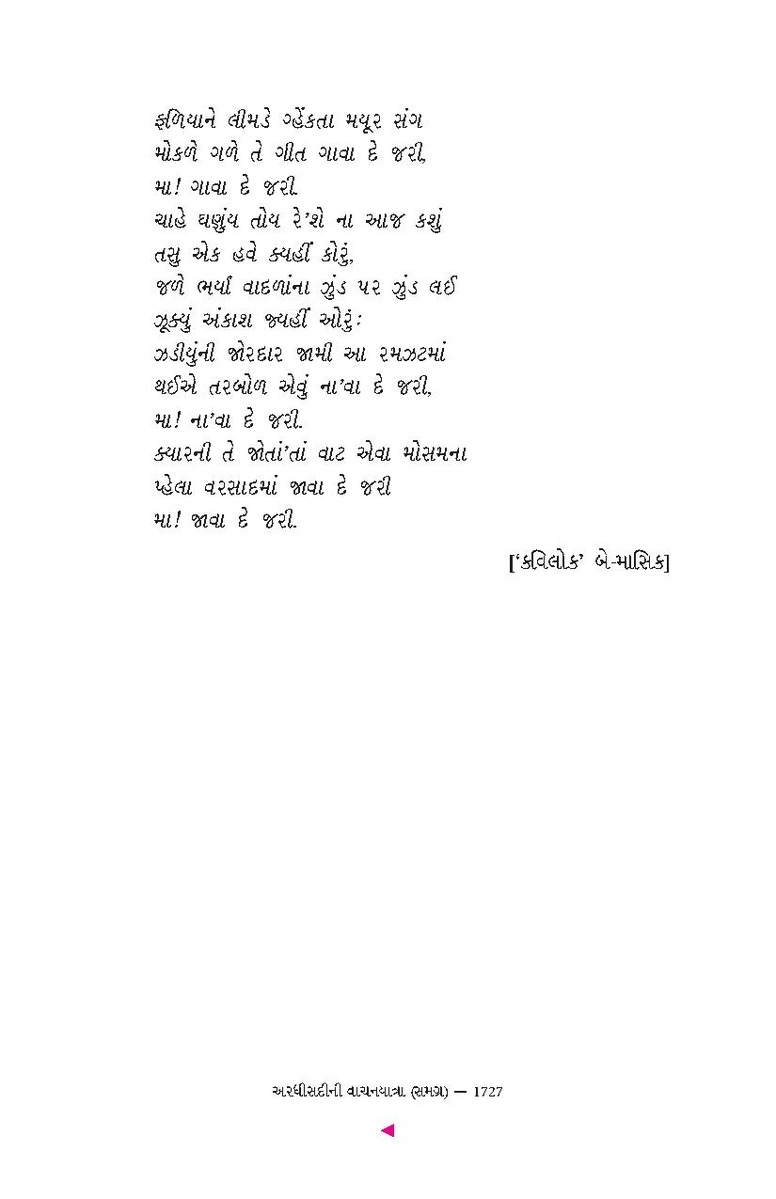 ફળિયાને લીમડે ગ્હેંકતા મયૂર સંગ
મોકળે ગળે તે ગીત ગાવા દે જરી,
મા! ગાવા દે જરી.
ચાહે ઘણુંય તોય રે’શે ના આજ કશું
તસુ એક હવે ક્યહીં કોરું,
જળે ભર્યાં વાદળાંના ઝુંડ પર ઝુંડ લઈ
ઝૂક્યું અંકાશ જ્યહીં ઓરું:
ઝડીયુંની જોરદાર જામી આ રમઝટમાં
થઈએ તરબોળ એવું ના’વા દે જરી,
મા! ના’વા દે જરી.
ક્યારની તે જોતાં’તાં વાટ એવા મોસમના
પ્હેલા વરસાદમાં જાવા દે જરી
મા! જાવા દે જરી.
[‘કવિલોક’ બે-માસિક]
અરધીસદીની વાચનયાત્રા (સમગ્ર) — 1727